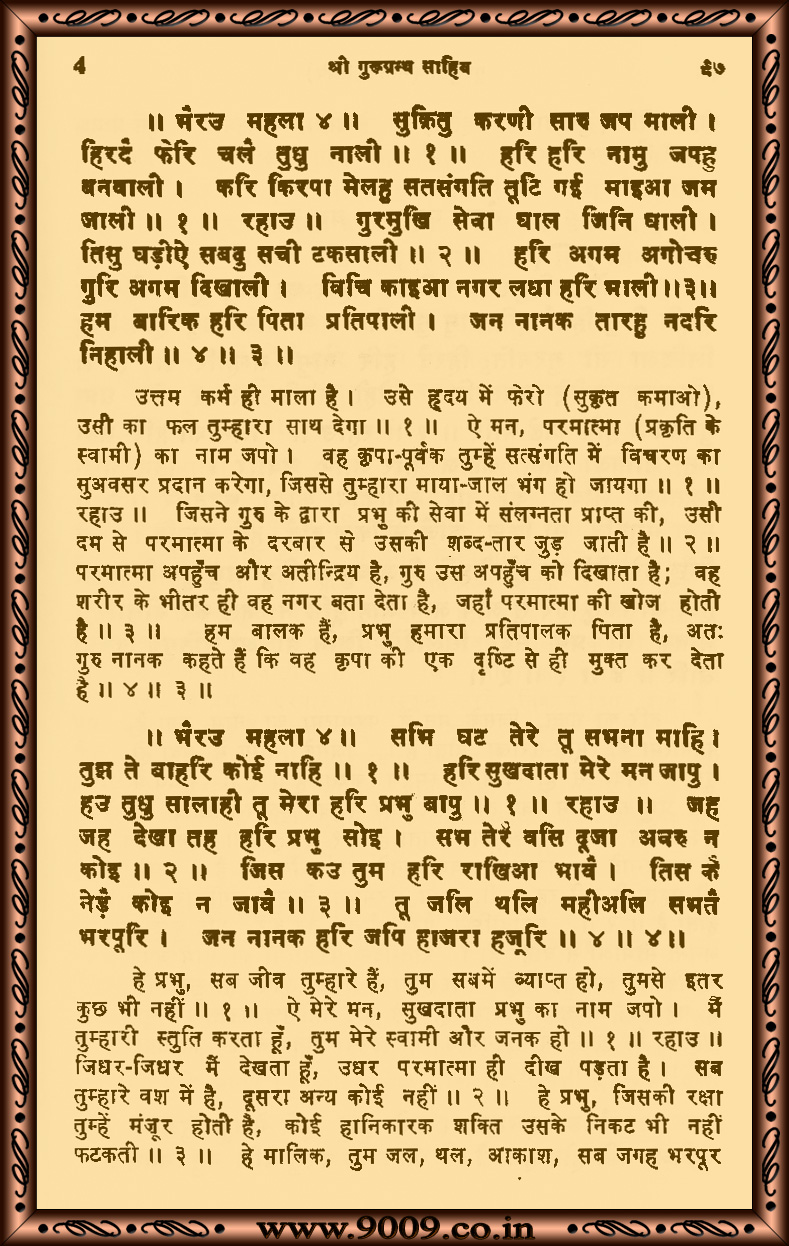 4 श्री गुरुग्रन्थ साहिब ६७
॥ भैरउ महला ४ ॥ सुक्रितु करणी सारु जप माली ।
हिरदै फेरि चलै तुधु नाली ॥ १ ॥ हरि हरि नामु जपहु
बनवाली । करि किरपा मेलहु सतसंगति तूटि गई माइआ जम
जाली ॥ १ ॥ रहाउ ॥ गुरमुखि सेवा घाल जिनि घाली ।
तिसु घड़ीऐ सबदु सची टकसाली ॥ २ ॥ हरि अगम अगोचरु
गुरि अगम दिखाली । विचि काइआ नगर लधा हरि भाली ॥ ३ ॥
हम बारिक हरि पिता प्रतिपाली । जन नानक तारहु नदरि
निहाली ॥ ४ ॥ ३ ॥
उत्तम कर्म ही माला है । उसे हृदय में फेरो (सुकृत कमाओ),
उसी का फल तुम्हारा साथ देगा ॥ १ ॥ ऐ मन, परमात्मा (प्रकृति के
स्वामी) का नाम जपो । वह कृपा-पूर्वक तुम्हें सत्संगति में विचरण का
सुअवसर प्रदान करेगा, जिससे तुम्हारा माया-जाल भंग हो जायगा ॥ १ ॥
रहाउ ॥ जिसने गुरु के द्वारा प्रभु की सेवा में संलग्नता प्राप्त की, उसी
दम से परमात्मा के दरबार से उसकी शब्द-तार जुड़ जाती है ॥ २ ॥
परमात्मा अपहुँच और अतीन्द्रिय है, गुरु उस अपहुँच को दिखाता है; वह
शरीर के भीतर ही वह नगर बता देता है, जहाँ परमात्मा की खोज होती
है ॥ ३ ॥ हम बालक हैं, प्रभु हमारा प्रतिपालक पिता है, अतः
गुरु नानक कहते हैं कि वह कृपा की एक दृष्टि से ही मुक्त कर देता
है ॥ ४ ॥ ३ ॥
॥ भैरउ महला ४ ॥ सभि घट तेरे तू सभना माहि ।
तुझ ते बाहरि कोई नाहि ॥ १ ॥ हरि सुखदाता मेरे मन जापु ।
हउ तुधु सालाही तू मेरा हरि प्रभु बापु ॥ १ ॥ रहाउ ॥ जह
जह देखा तह हरि प्रभु सोइ । सभ तेरै वसि दूजा अवरु न
कोइ ॥ २ ॥ जिस कउ तुम हरि राखिआ भावै । तिस कै
नेड़ै कोइ न जावै ॥ ३ ॥ तू जलि थलि महीअलि सभतै
भरपूरि । जन नानक हरि जपि हाजरा हजूरि ॥ ४ ॥ ४ ॥
हे प्रभु, सब जीव तुम्हारे हैं, तुम सबमें व्याप्त हो, तुमसे इतर
कुछ भी नहीं ॥ १ ॥ ऐ मेरे मन, सुखदाता प्रभु का नाम जपो । मैं
तुम्हारी स्तुति करता हूँ, तुम मेरे स्वामी और जनक हो ॥ १ ॥ रहाउ ॥
जिधर-जिधर मैं देखता हूँ, उधर परमात्मा ही दीख पड़ता है । सब
तुम्हारे वश में है, दूसरा अन्य कोई नहीं ॥ २ ॥ हे प्रभु, जिसकी रक्षा
तुम्हें मंजूर होती है, कोई हानिकारक शक्ति उसके निकट भी नहीं
फटकती ॥ ३ ॥ हे मालिक, तुम जल, थल, आकाश, सब जगह भरपूर
www.9009.co.in